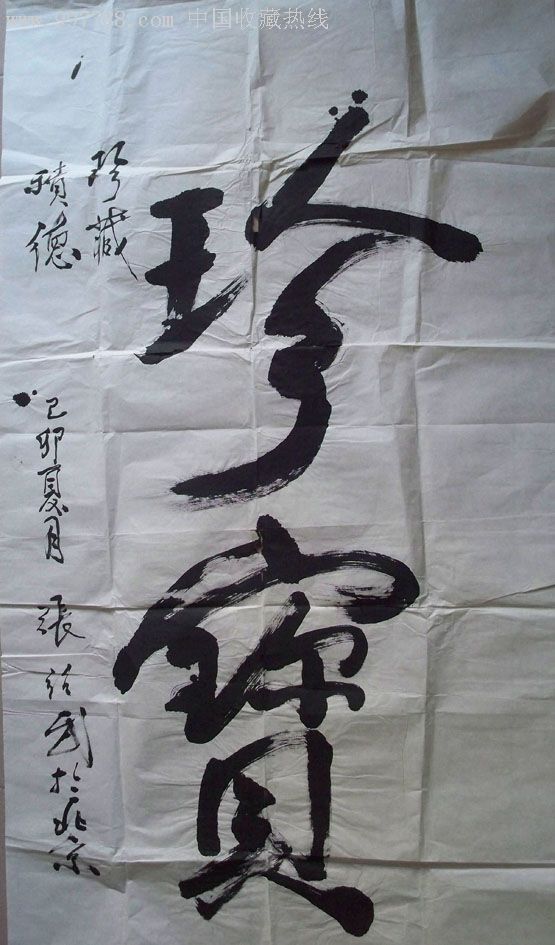 www.997788.com 中国收藏热线
珍寶
珍藏
積德
己卯夏月 張紹武於北京